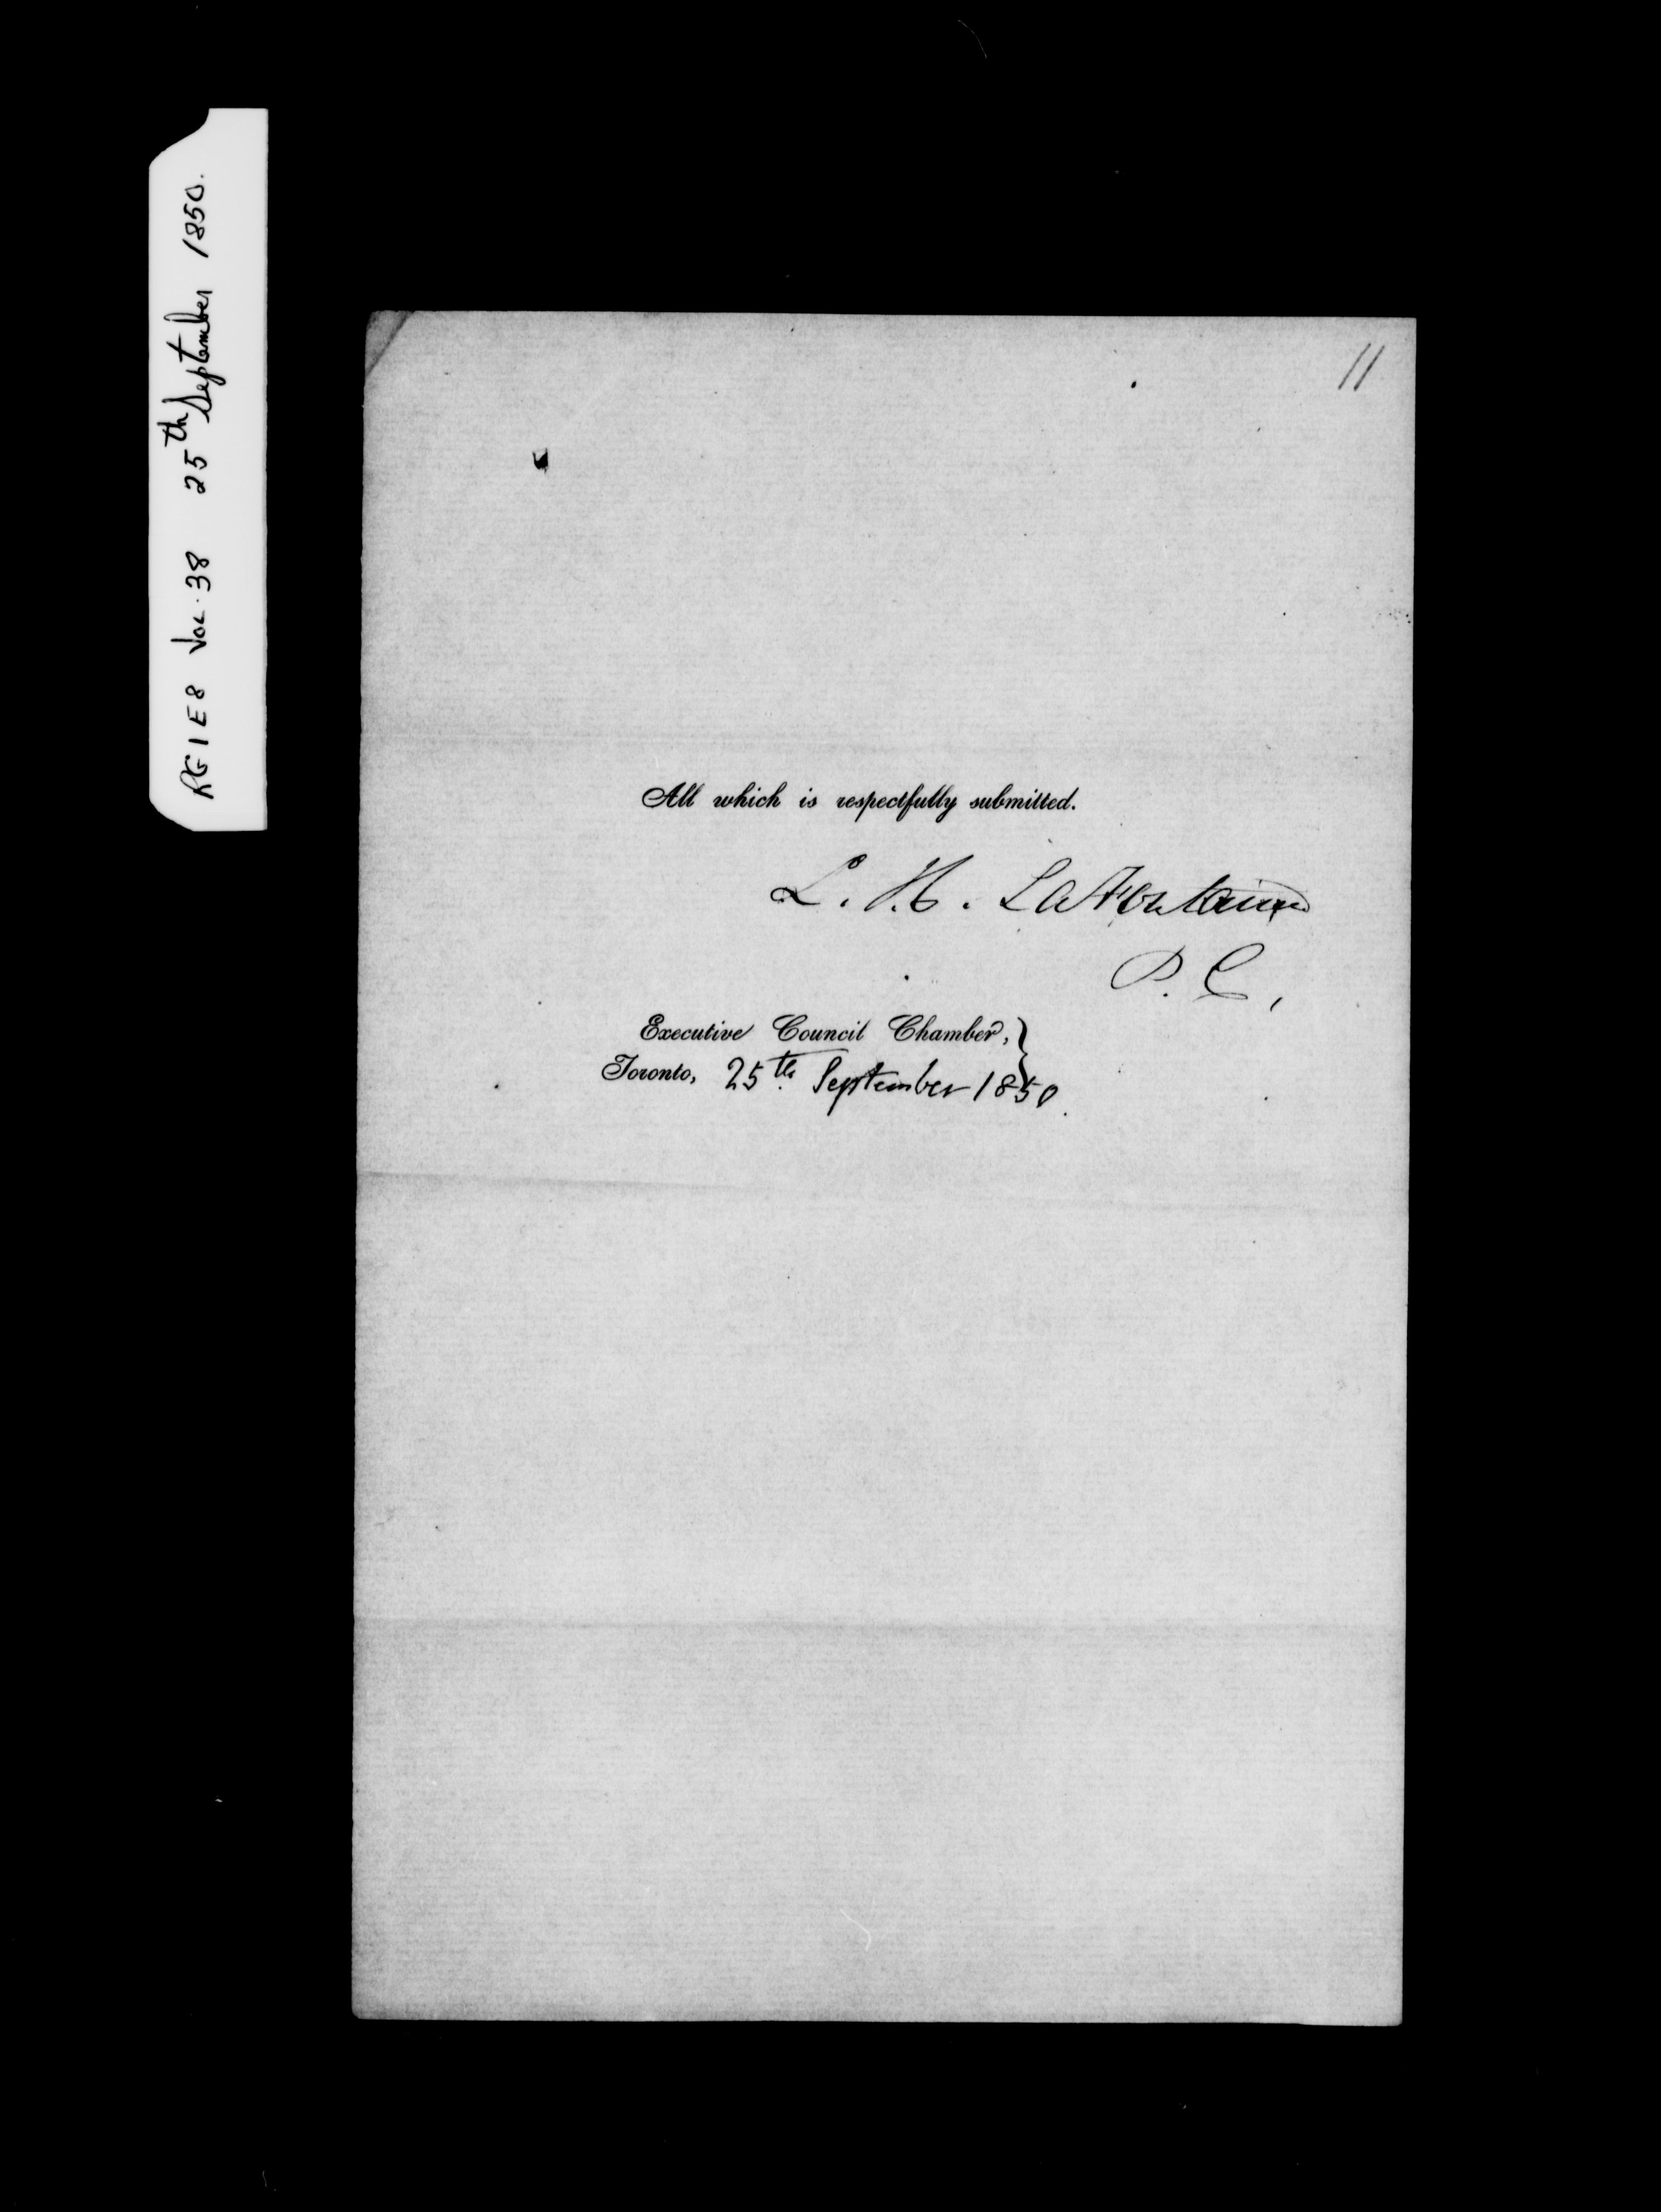 RG1E8 VOL. 38 25th September 1850.
11
All which is respectfully submitted.
L. H. LaFontaine
P. C,
Executive Council Chamber, }
Toronto, 25th. September 1850.